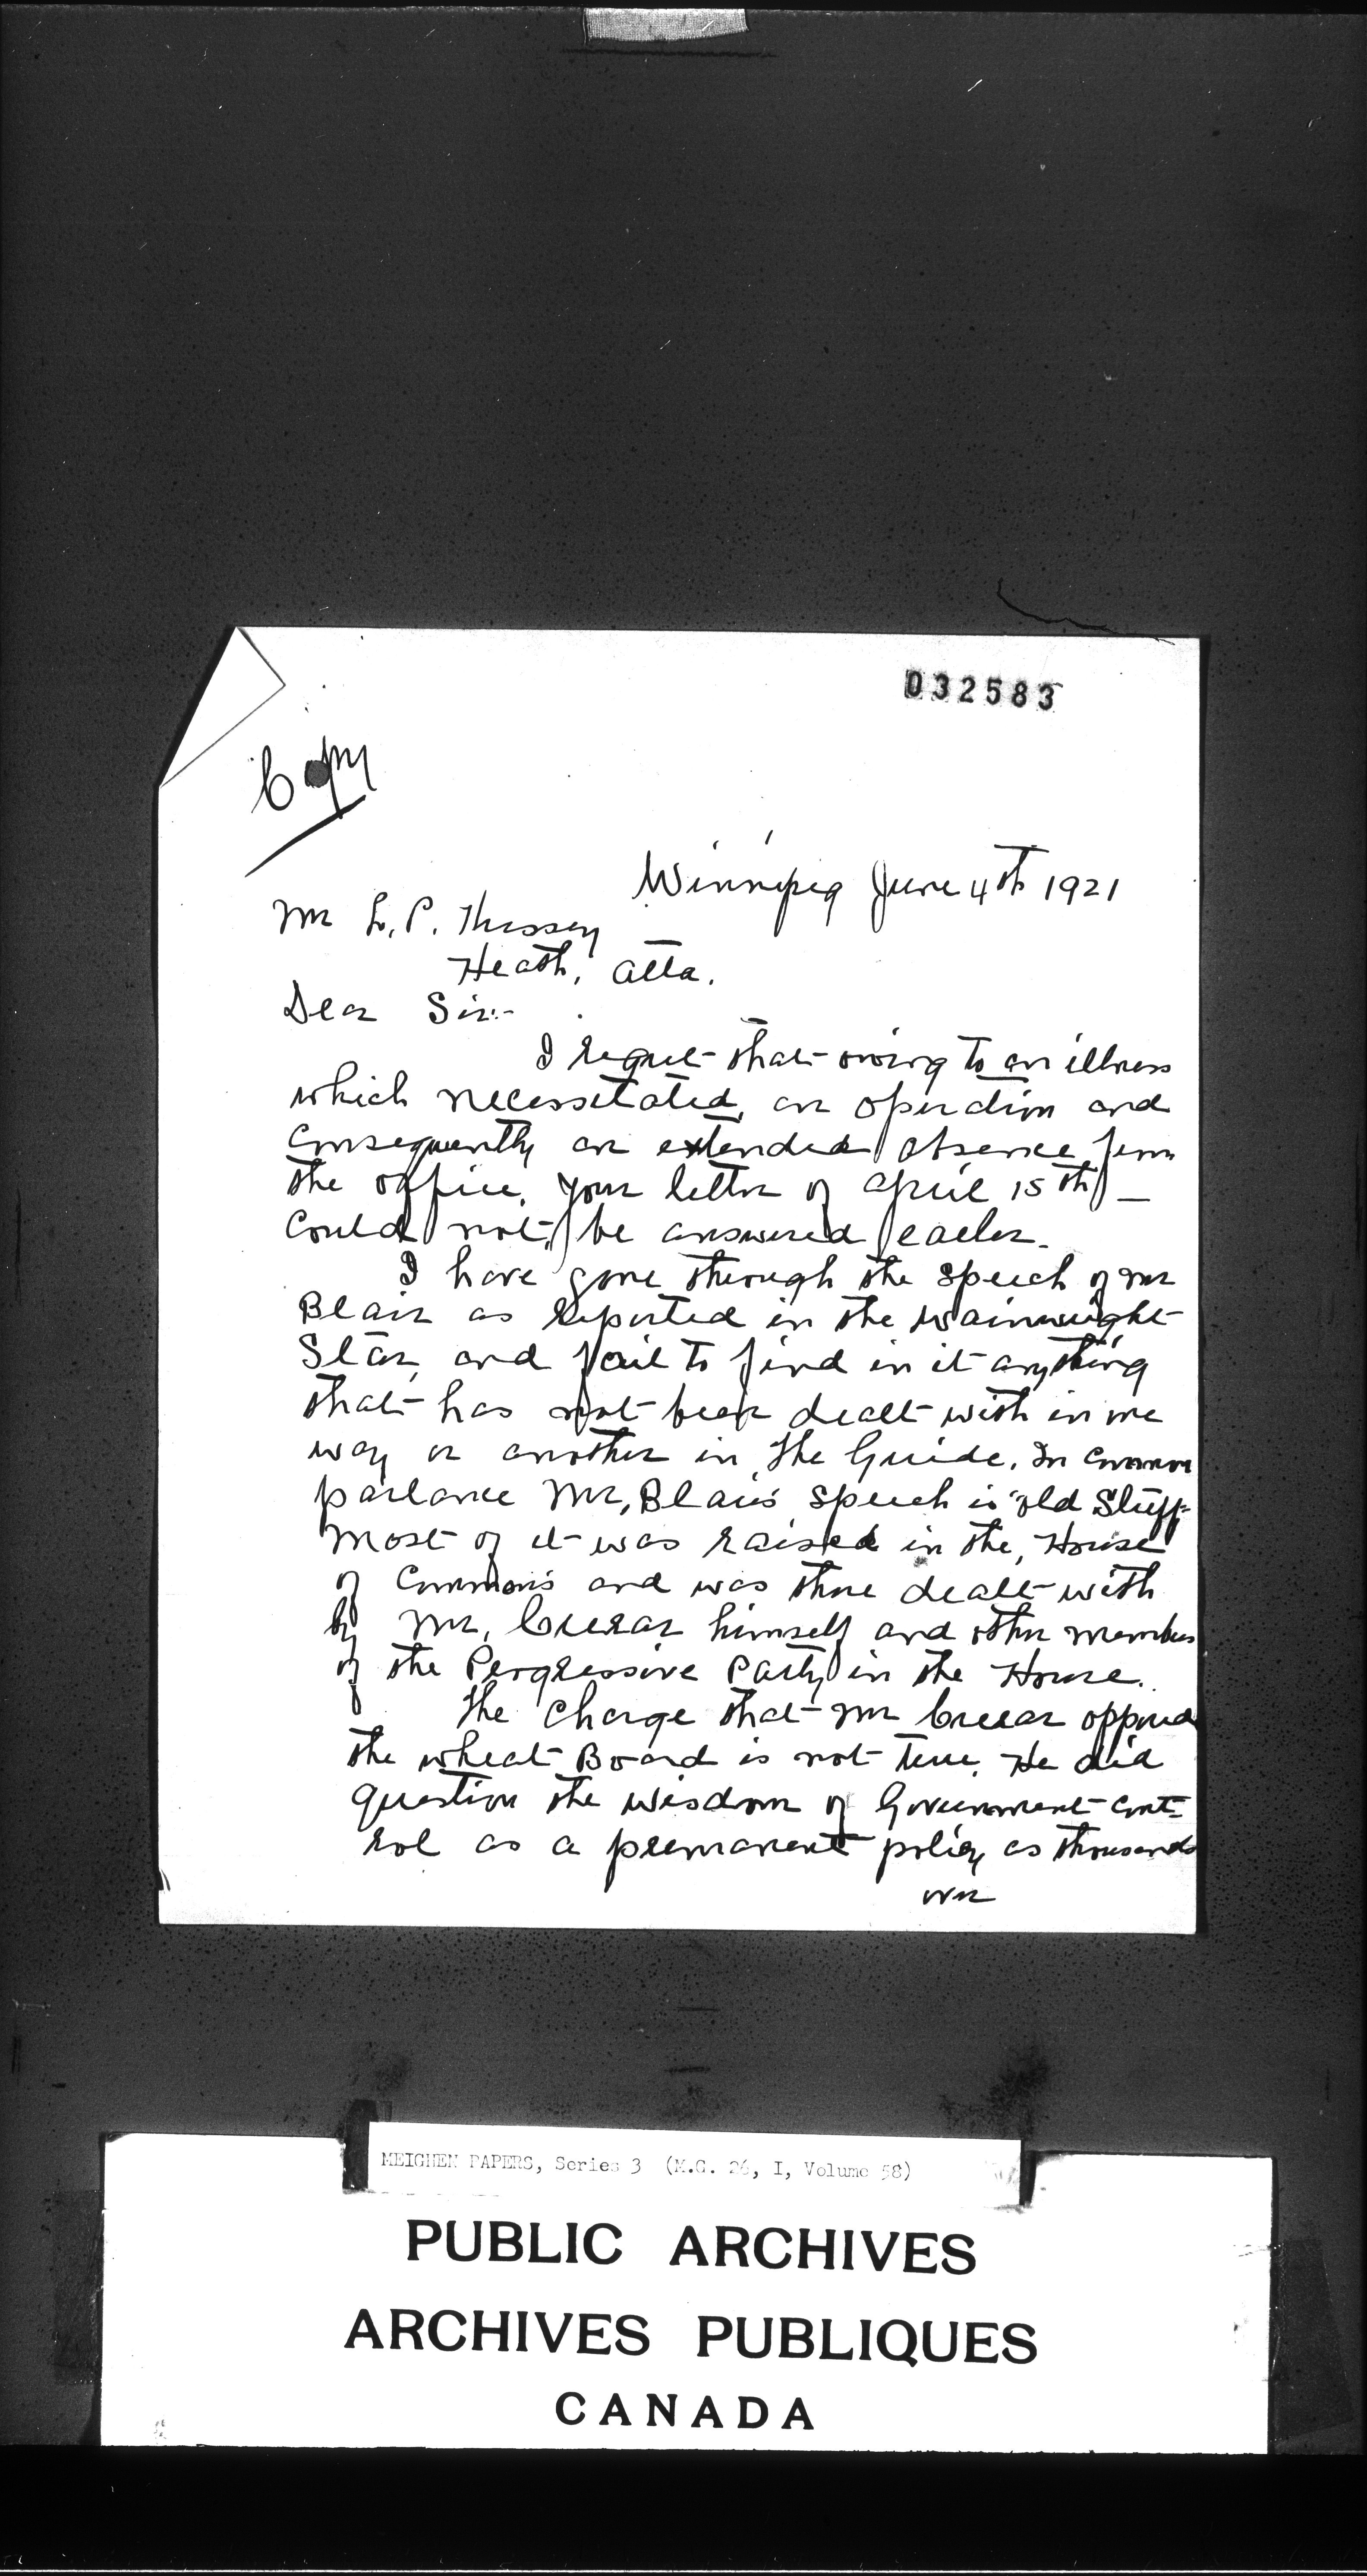 032583
Copy
Winnipeg June 4th 1921
Mr L. P.
Heath, Alta.
Dear Sir:-
I regret that owing to an illness
which necessitated, an operation and
consequently an extended absence from
the office, your letter of April 15th
could not, be answered earlier.
I have gone through the speech of Mr
Blair as reported in the Wainwright
Star, and fail to find in it anything
that has not been dealt with in one
way or another in, The Guide. In common
parlance Mr, Blair's speech is "old stuff"
Most of it was raised in the, House
of Commons and was there dealt with
by Mr, Crerar himself and other members
of the Progressive Party in the House.
The charge that Mr Crerar opposed
the wheat Board is not true. He did
question the wisdom of Government cont=
rol as a permanent policy as thousands
over
MEIGHEN PAPERS, Series 3 (M.G. 26, I, Volume 58)
PUBLIC ARCHIVES
ARCHIVES PUBLIQUES
CANADA